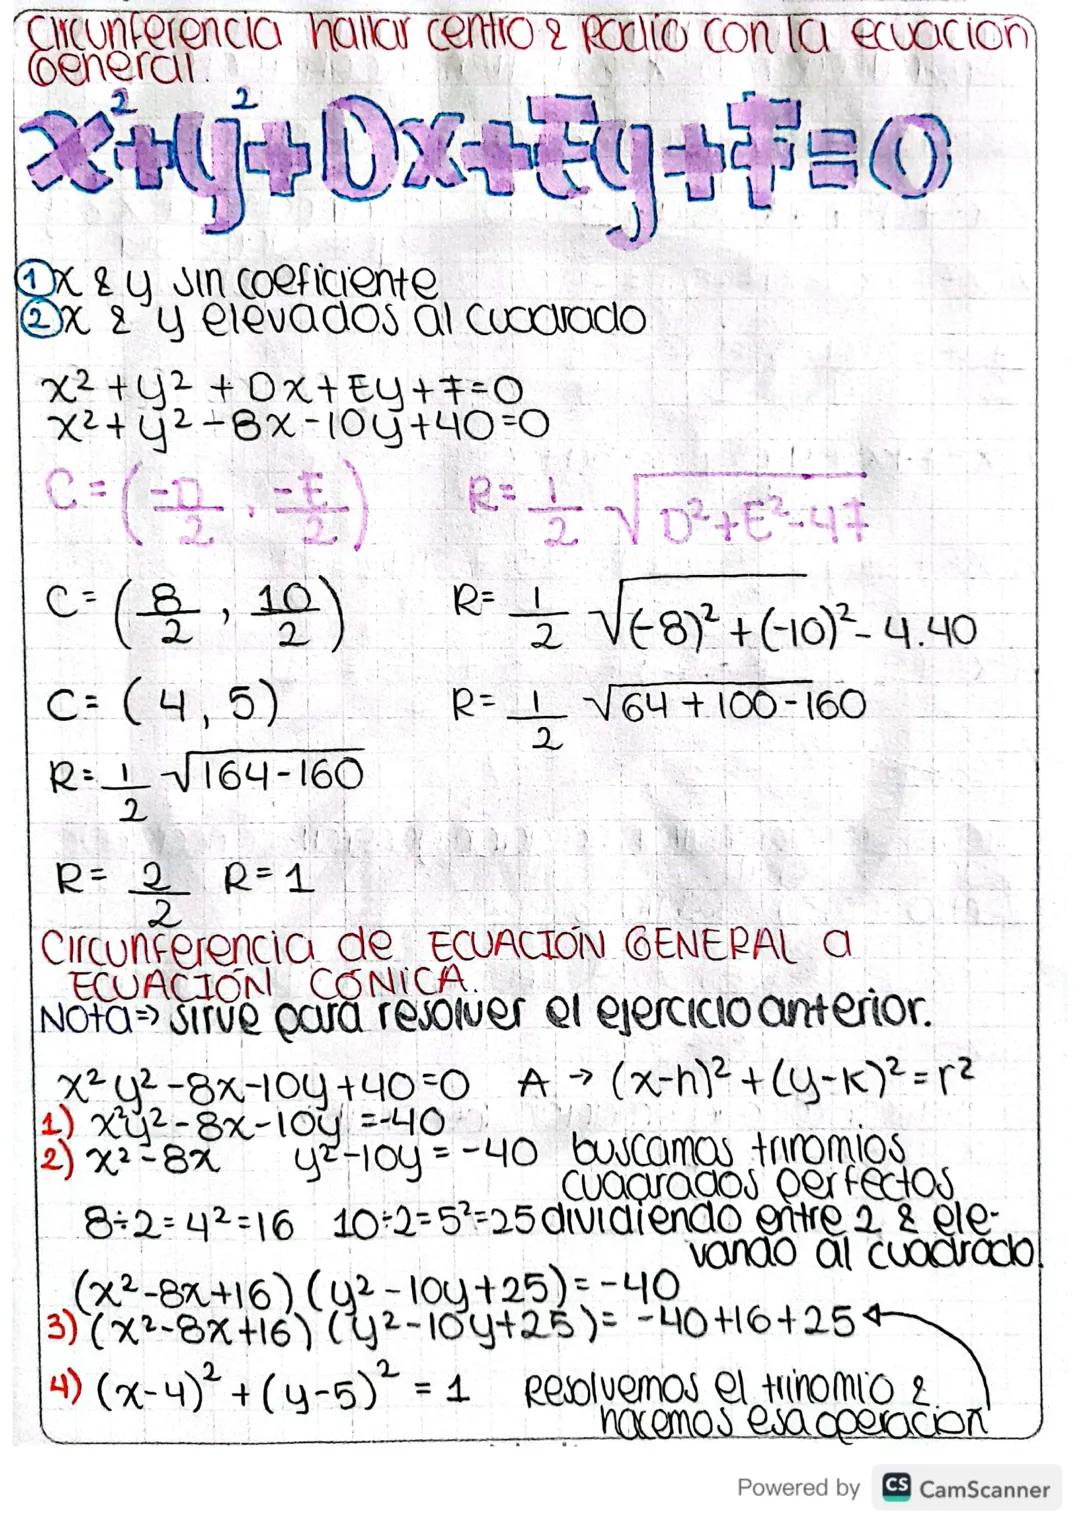 Circunferencia hallar centro & Radio con la ecuación
General.
x²+y²+Dx+Ey+F=0
① x & y sin coeficiente
② x & y elevados al cuadrado
x²+y²+Dx+Ey+F=0
x²+y²-8x-10y+40=0
C=(-D/2, -E/2) R= 1/2 √D²+E²-4F
C=(8/2, 10/2) R= 1/2 √(-8)²+(-10)²-4.40
C=(4,5) R= 1/2 √64+100-160
R= 1/2 √164-160
R= 2/2 R=1
Circunferencia de ECUACIÓN GENERAL a
ECUACIÓN CÓNICA.
Nota=> sirve para resolver el ejercicio anterior.
x²y²-8x-10y+40=0 A → (x-h)²+(y-k)²=r²
1) x²y²-8x-10y=-40
2) x²-8x y²-10y=-40 buscamos trinomios
cuadrados perfectos
8÷2=4²=16 10÷2=5²=25 dividiendo entre 2 & ele-
vando al cuadrado.
(x²-8x+16)(y²-10y+25)=-40
3) (x²-8x+16)(y²-10y+25)=-40+16+25
4) (x-4)²+(y-5)²=1 Resolvemos el trinomio &
hacemos esa operacion
Powered by CS CamScanner